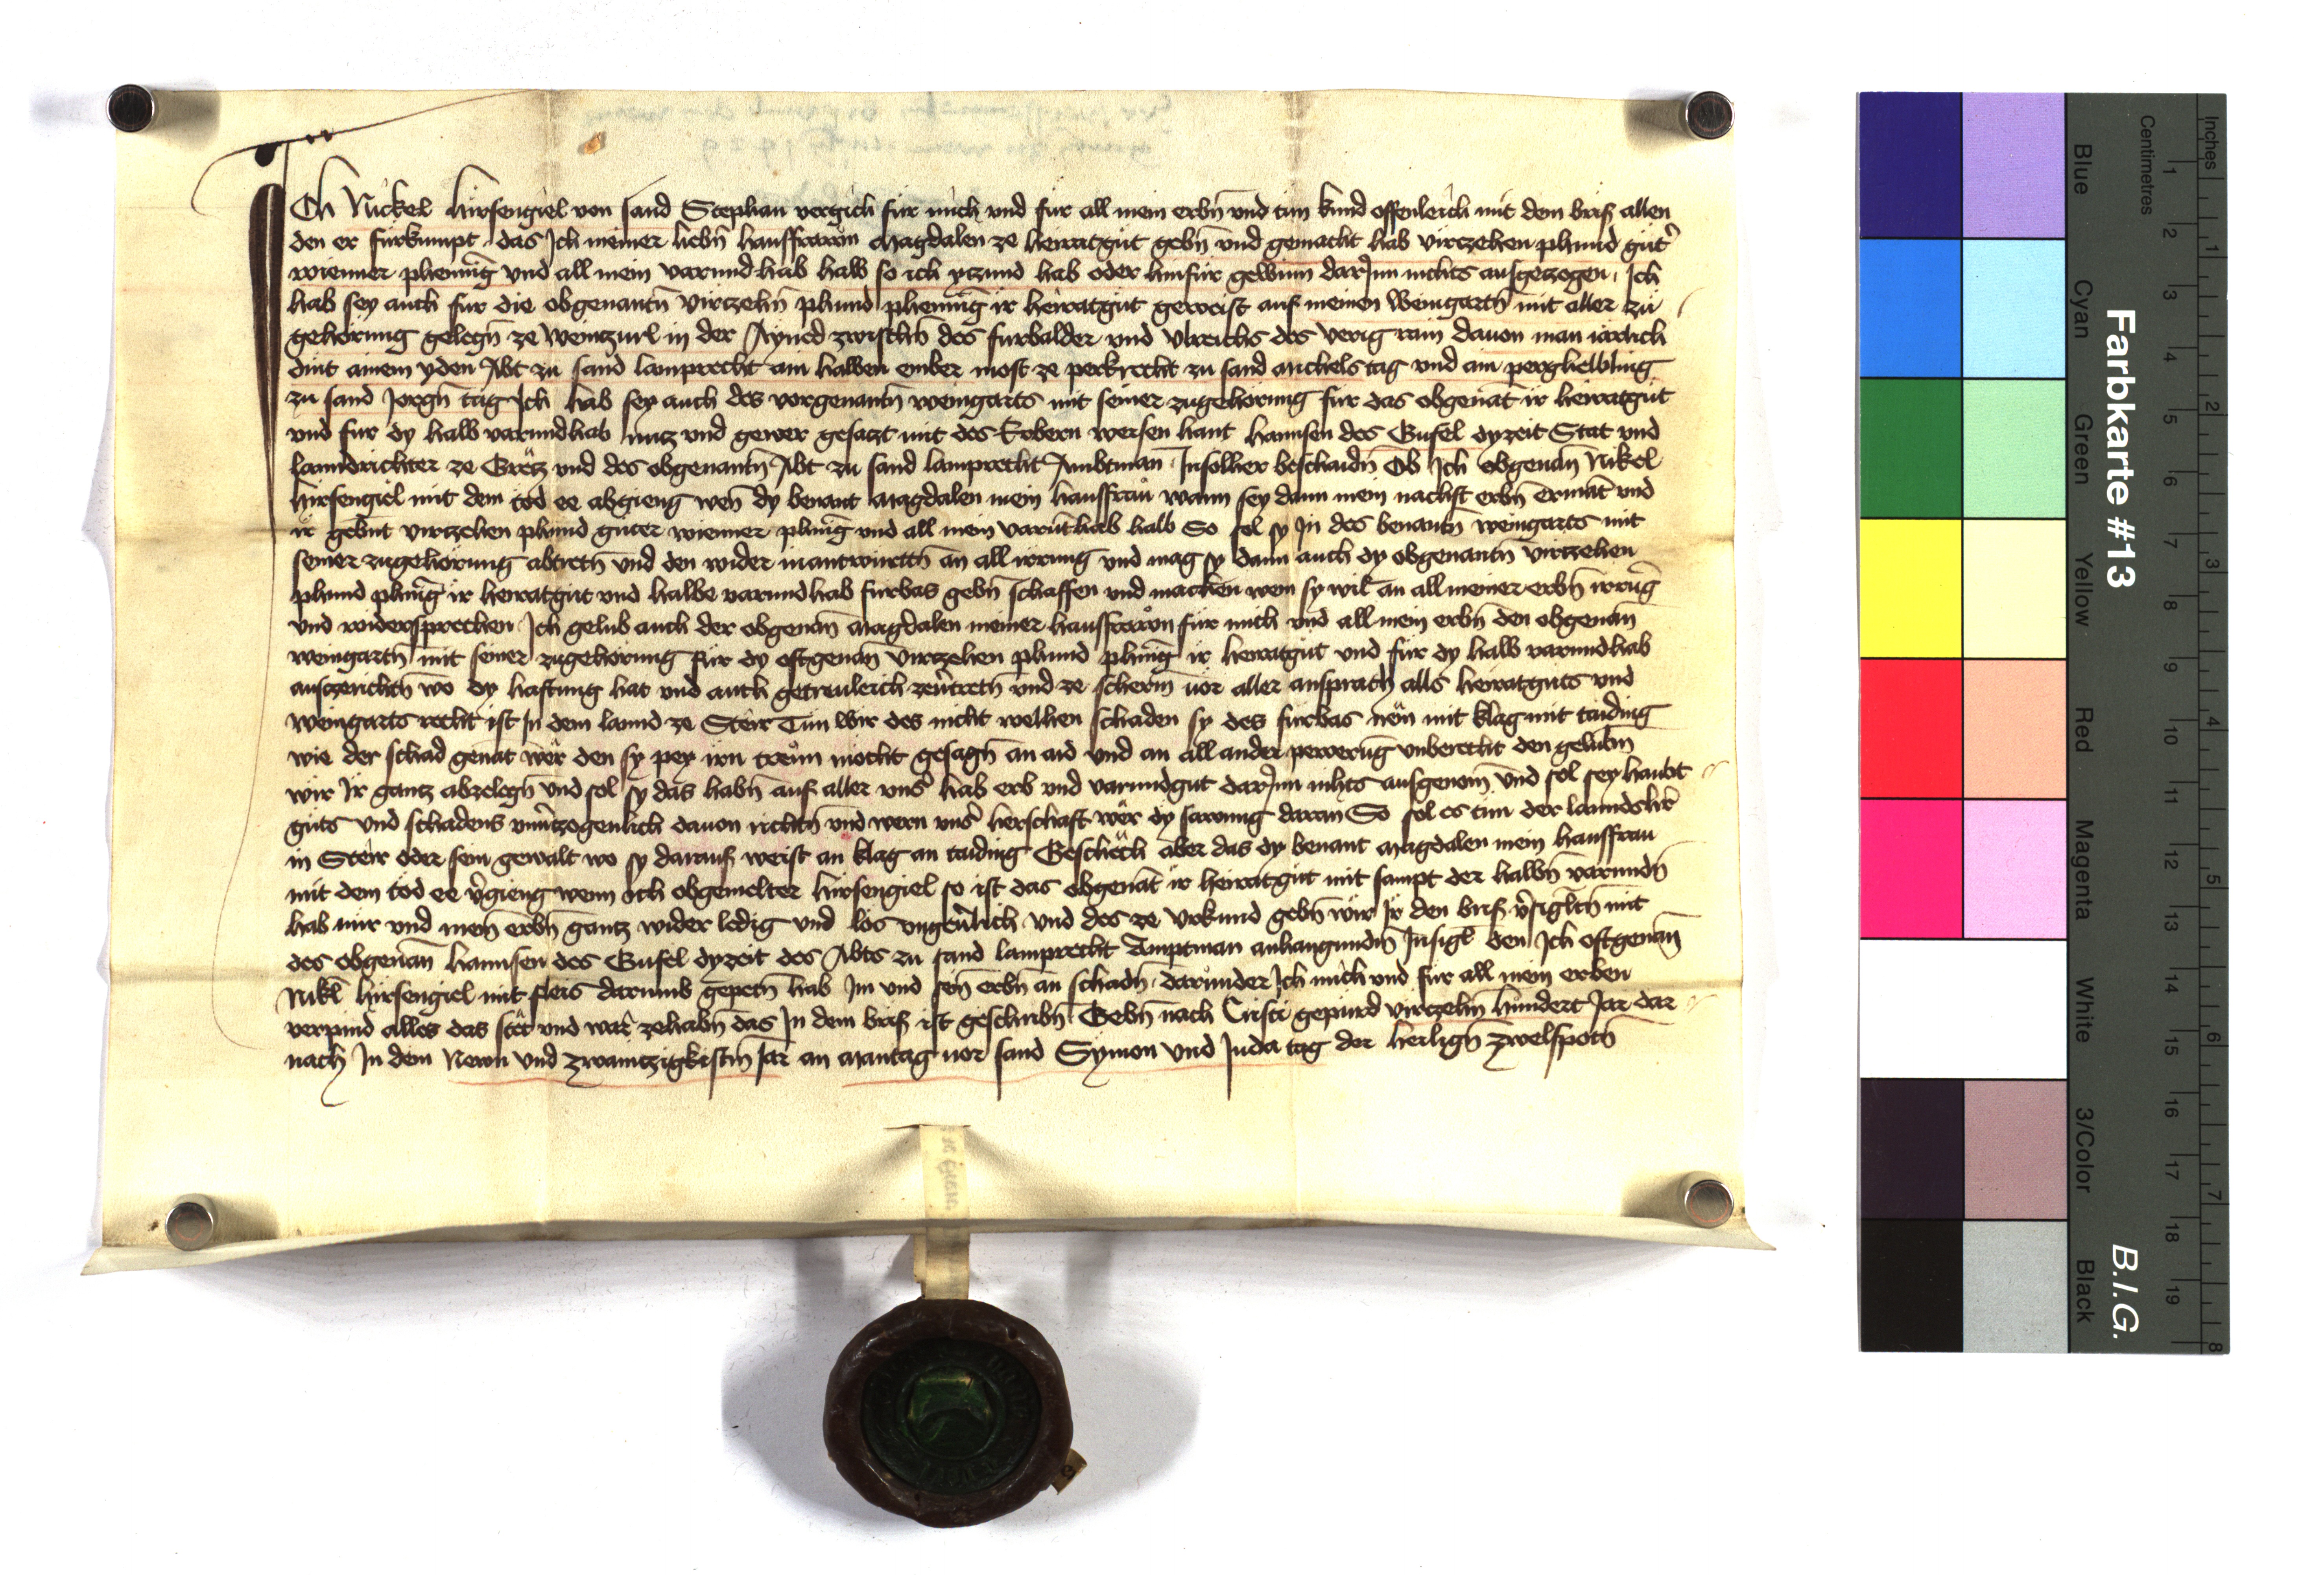 Ich Nickel hirsengiel von sand Stephan vergich für mich vnd für all mein erbn̄ vnd tun kund offenleich mit dem brif allen
den er furkumpt das Ich meiner liebn̄ hausfrawn Magdalen ze heiratgut gebn̄ vnd gemacht hab virczehen phund gut̉
wienner phennīg vnd all mein varundhab halb so ich yczund hab oder hinfür gewinn darJnn nichts ausgeczogen Ich
hab sey auch fur die obgenantn̄ virczehn̄ phund phennīg ir heiratgut geweist auf meinen Weingartn̄ mit aller zu
gehorung gelegn̄ ze Weinczurl in der Aynod zwischn̄ des furbalder vnd Vlreichs des verig rain dauon man iarlich
dint ainem yden Abt zu sand lamprecht ain halben ember most ze perkrecht zu sand Michels tag vnd ain perghelbling
zu sand Jorgn̄ tag Ich hab sey auch des vorgenantn̄ weingarts mit seiner zugehorung fur das obgenāt ir heiratgut
vnd fur dy halb varundhab nucz vnd gewer gesaczt mit des Erbern weisen hant hannsen des Gusel dyzeit Stat vnd
lanndrichter ze Grëtz vnd des obgenantn̄ Abt zu sand lamprecht Ambtman Jnsolher beschaidn̄ Ob Ich obgenān Nikel
hirsengiel mit dem tod ee abgieng wen̄ dy benant Magdalen mein hausfraw wann sey dann mein nachst erbn̄ ermāt vnd
ir gebnt virczehen phund guter wienner phnīg vnd all mein varūthab halb So sol sy Jn des benantn̄ weingarts mit
seiner zugehorung abtretn̄ vnd den wider inantwurttn̄ an all irrung vnd mag sy dann auch dy obgenantn̄ virczehen
phund phnīg ir heiratgut vnd halbe varundhab furbas gebn̄ schaffen vnd machen wem sy wil an all meiner erbn̄ irrūg
vnd widersprechen Ich gelub auch der obgenān Magdalen meiner hausfrawn für mich vnd all mein erbn̄ den obgenān
weingartn̄ mit seiner zugehorung für dy oftgenān virczehen phund phnīg ir heiratgut vnd für dy halb varundhab
ausczerichtn̄ wo dy haftung hat vnd auch getreuleich zeu̓tretn̄ vnd ze scherm̄ uor aller ansprach alls heiratguts vnd
weingarts recht ist Jn dem lannd ze Steir Tun wir des nicht welhen schaden sy des furbas nëm mit klag mit taiding
wie der schad genāt wër den sy pey irn trewn mocht gesagn̄ an aid vnd an all ander pewerūg vnberecht den gelubm̄
wir Jr gantz abzelegn̄ vnd sol sy das habn̄ auf aller vns̉ hab erb vnd varundgut darJnn nichts ausgenom̄ vnd sol sey haubt
guts vnd schadens vnu̓czogenlich dauon richtn̄ vnd wern vns̉ herschaft wër dy sawmig daran So sol es tun der lanndsher̉
in Steir oder sein gewalt wo sy darauf weist an klag an taiding Geschëch aber das dy benant Magdalen mein hausfraw
mit dem tod ee v̉gieng wenn ich obgemelter hirsengiel so ist das obgenāt ir heiratgut mit sampt der halbn̄ varundn̄
hab mir vnd mein̄ erbn̄ gantz wider ledig vnd los vngeu̓lich vnd des ze vrkund gebn̄ wir Jr den brif v̉sigltn̄ mit
des obgenān hannsen des Gusel dyzeit des Abts zu sand lamprecht Amptman anhangundm̄ Jnsigl den Ich oftgenān
Nikl̄ hirsengiel mit fleis darumb gepetn̄ hab Jm vnd sein̄ erbn̄ an schadn̄ darunder Ich mich vnd für all mein erben
verpind alles das stët vnd war zehabn̄ das Jn dem brif ist geschribn̄ Gebn̄ nach Cristi gepurd virczehn̄ hundert Jar dar
nach Jn dem Newn vnd zwainczigkistn̄ Jar an Mantag uor sand Symon vnd Juda tag der heilign̄ zwelfpotn̄
Farbkarte #13
B.I.G.
Blue
Cyan
Green
Yellow
Red
Magenta
White
3/Color
Black
Centimetres
1 2 3 4 5 6 7 8 9 10 11 12 13 14 15 16 17 18 19
Inches
1 2 3 4 5 6 7 8